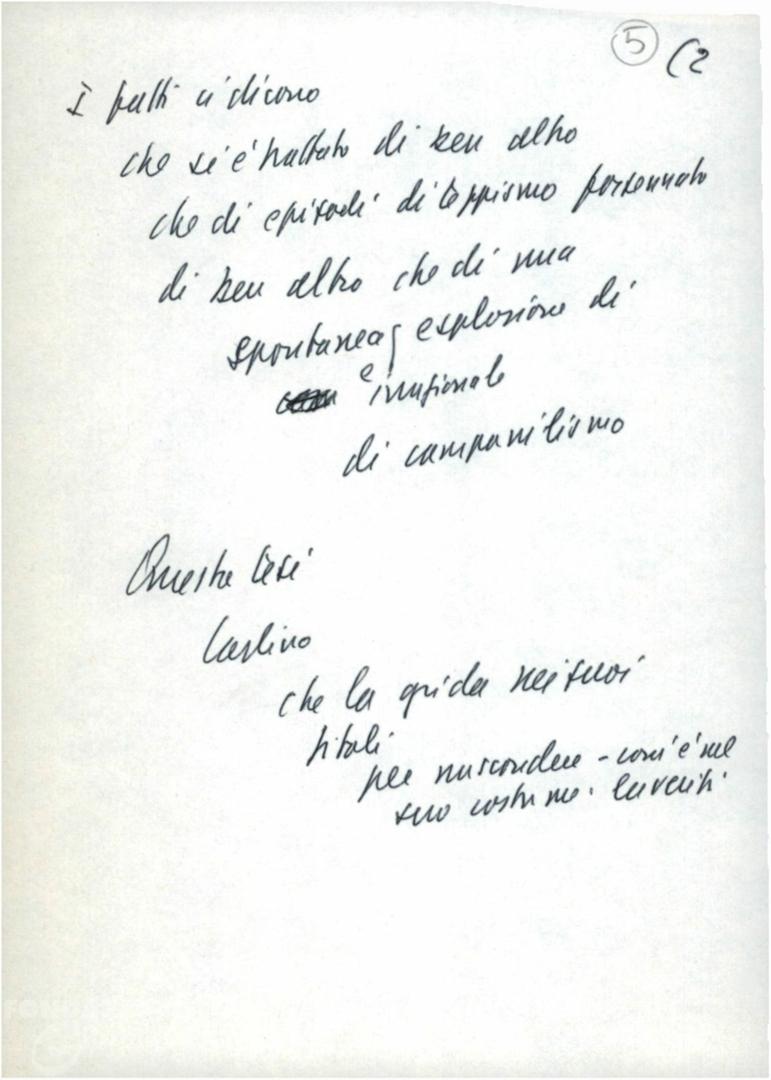 5 (2
I fatti ci dicono
che si è trattato di ben altro
che di episodi di teppismo forsennato
di ben altro che di una
spontanea esplosione di
e irrazionale
di campanilismo
Questa tesi
Carlino
che la grida nei suoi
titoli
per nascondere - com'è nel
suo costume - la verità